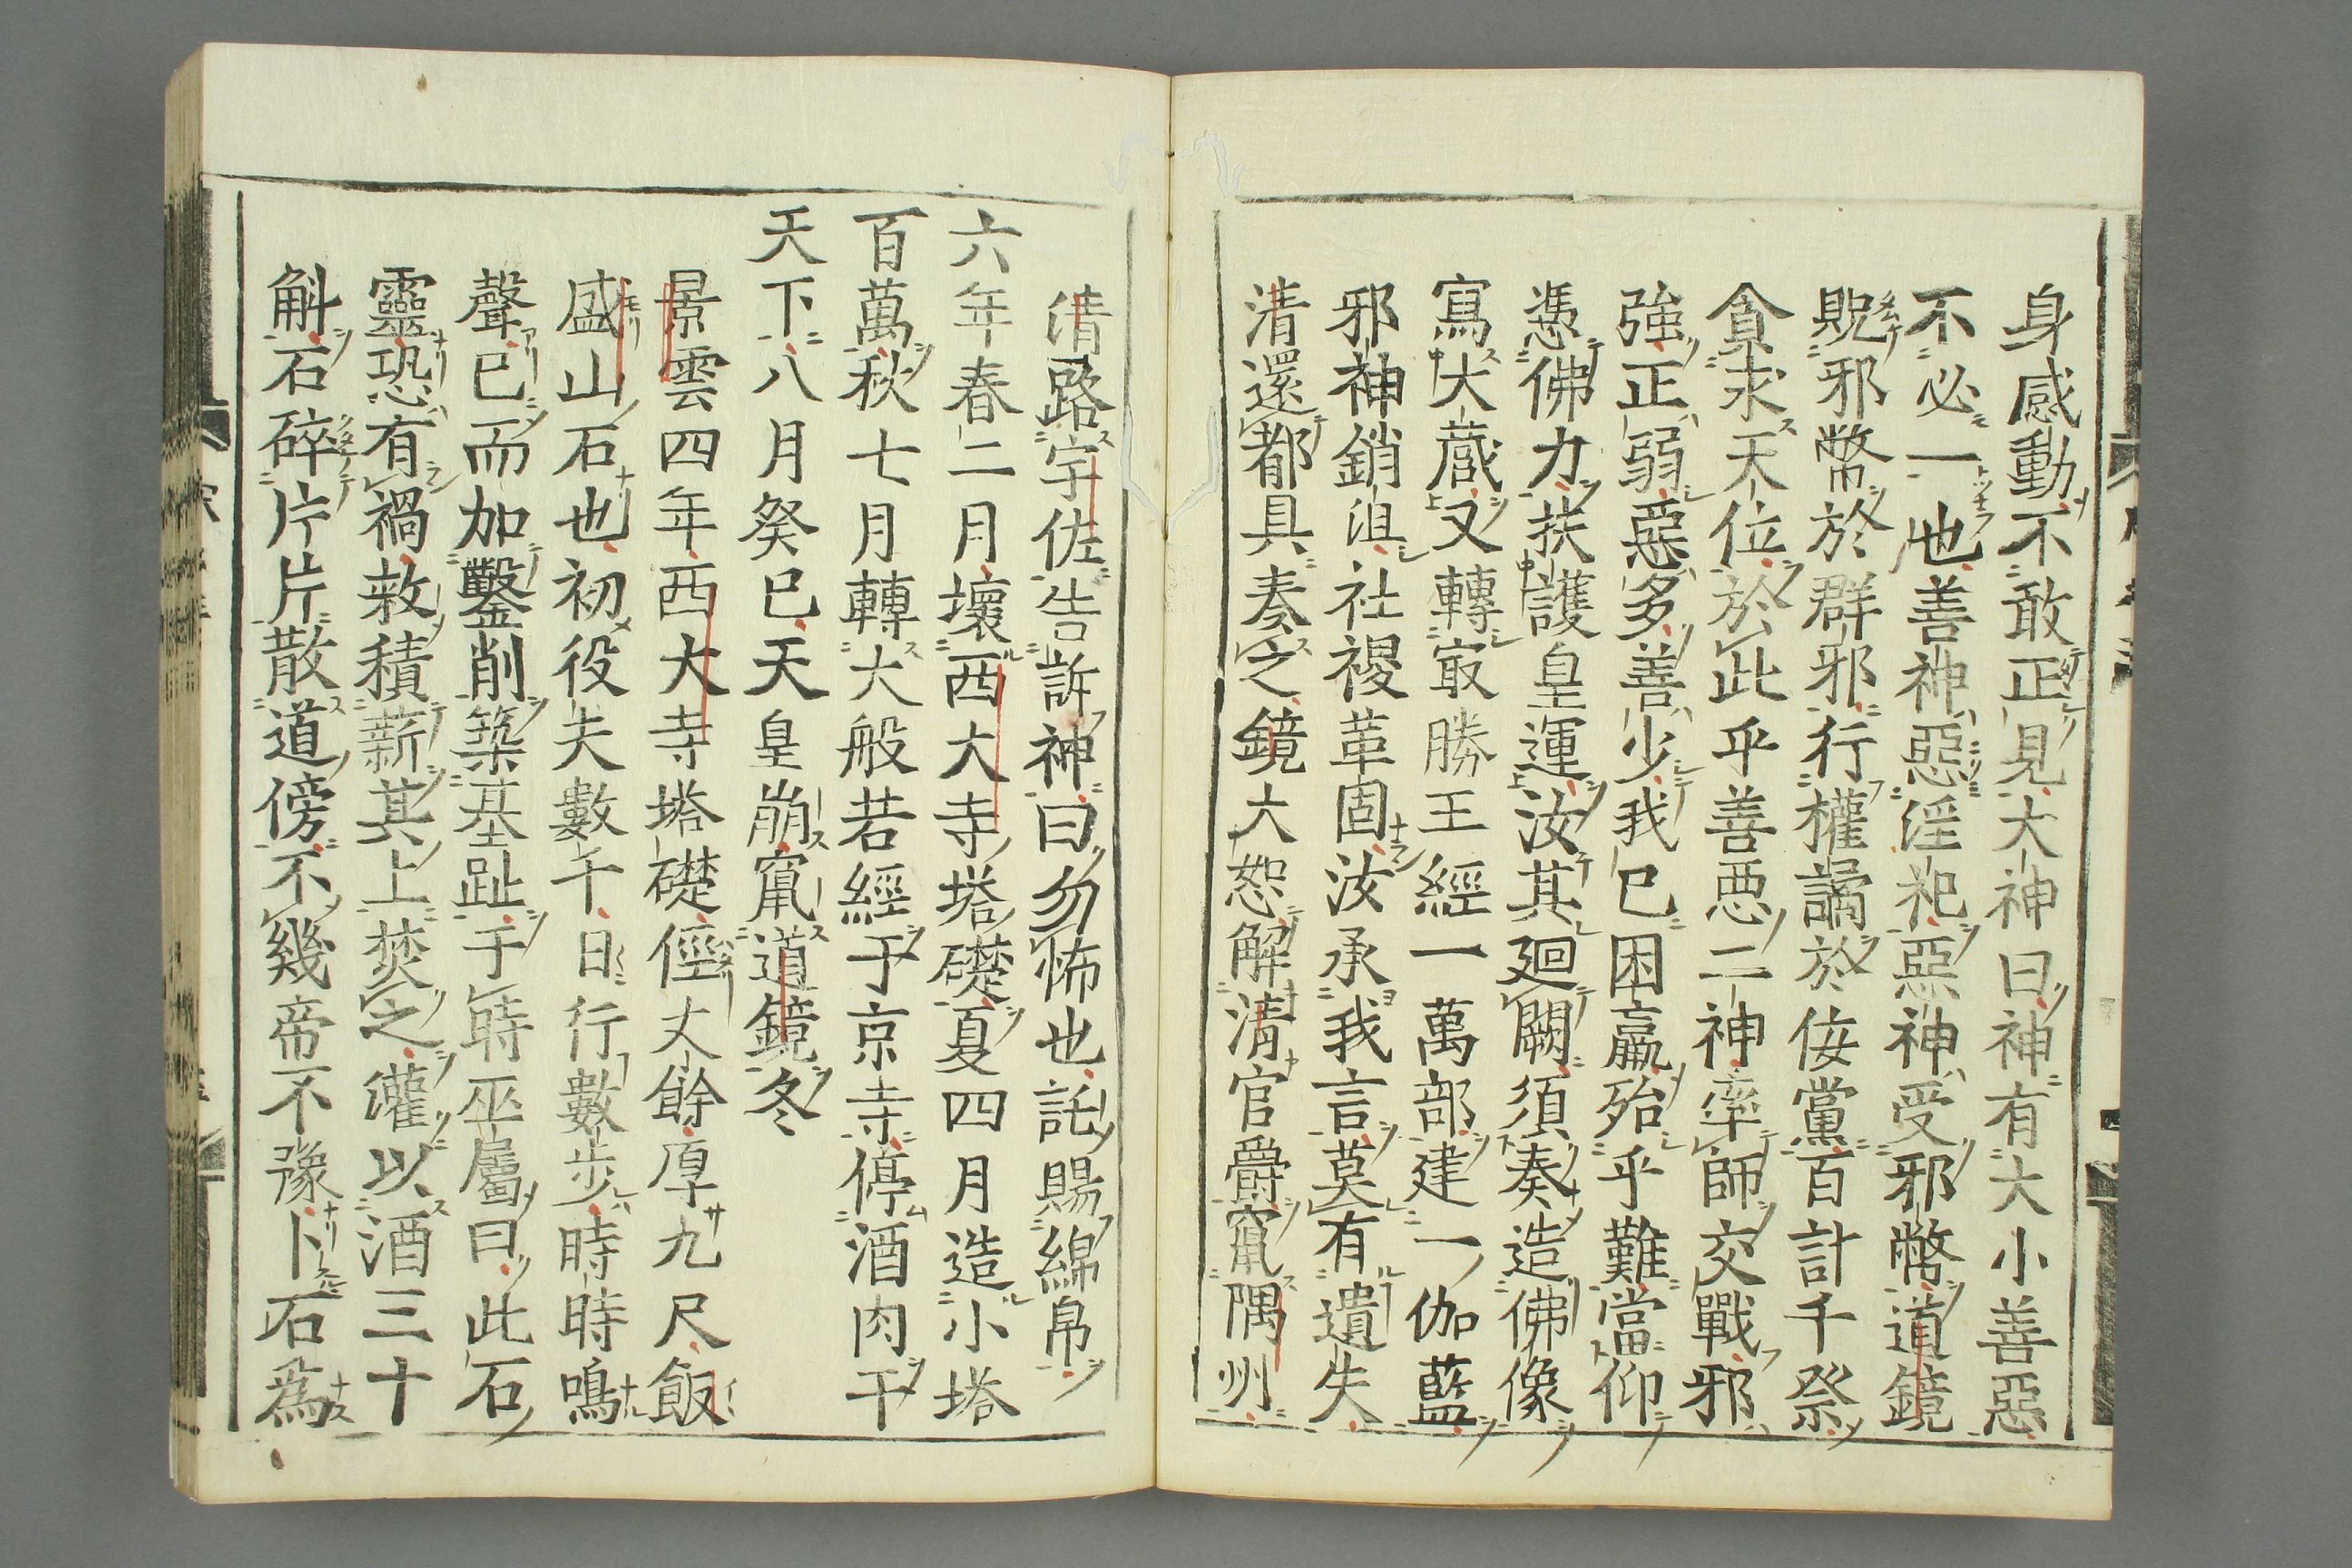 身感動不敢正見大神曰神有大小善惡
不必一也善神惡淫祀惡神受邪幣道鏡
貺邪幣於群邪行權譎於佞黨百計千祭
貪求天位於此乎善惡二神率師交戰邪
強正弱惡多善少我已困羸殆乎難當仰
憑佛力扶護皇運汝其廻闕須奏造佛像
寫大藏又轉㝡勝王經一萬部建一伽藍
邪神銷沮社稷革固汝承我言莫有遺失
清還都具奏之鏡大怒解清官爵竄隅州
清路宇佐告訴神曰勿怖也託賜綿帛
六年春二月壞西大寺塔礎夏四月造小塔
百萬秋七月轉大般若經于京寺停酒肉于
天下八月癸巳天皇崩竄道鏡冬
景雲四年西大寺塔礎徑丈餘厚九尺飯
盛山石也初役夫數千日行數步時時鳴
聲已而加鑿削築基趾于時巫屬曰此石
靈恐有禍敕積薪其上焚之灌以酒三十
斛石碎片片散道傍不幾帝不豫卜石爲